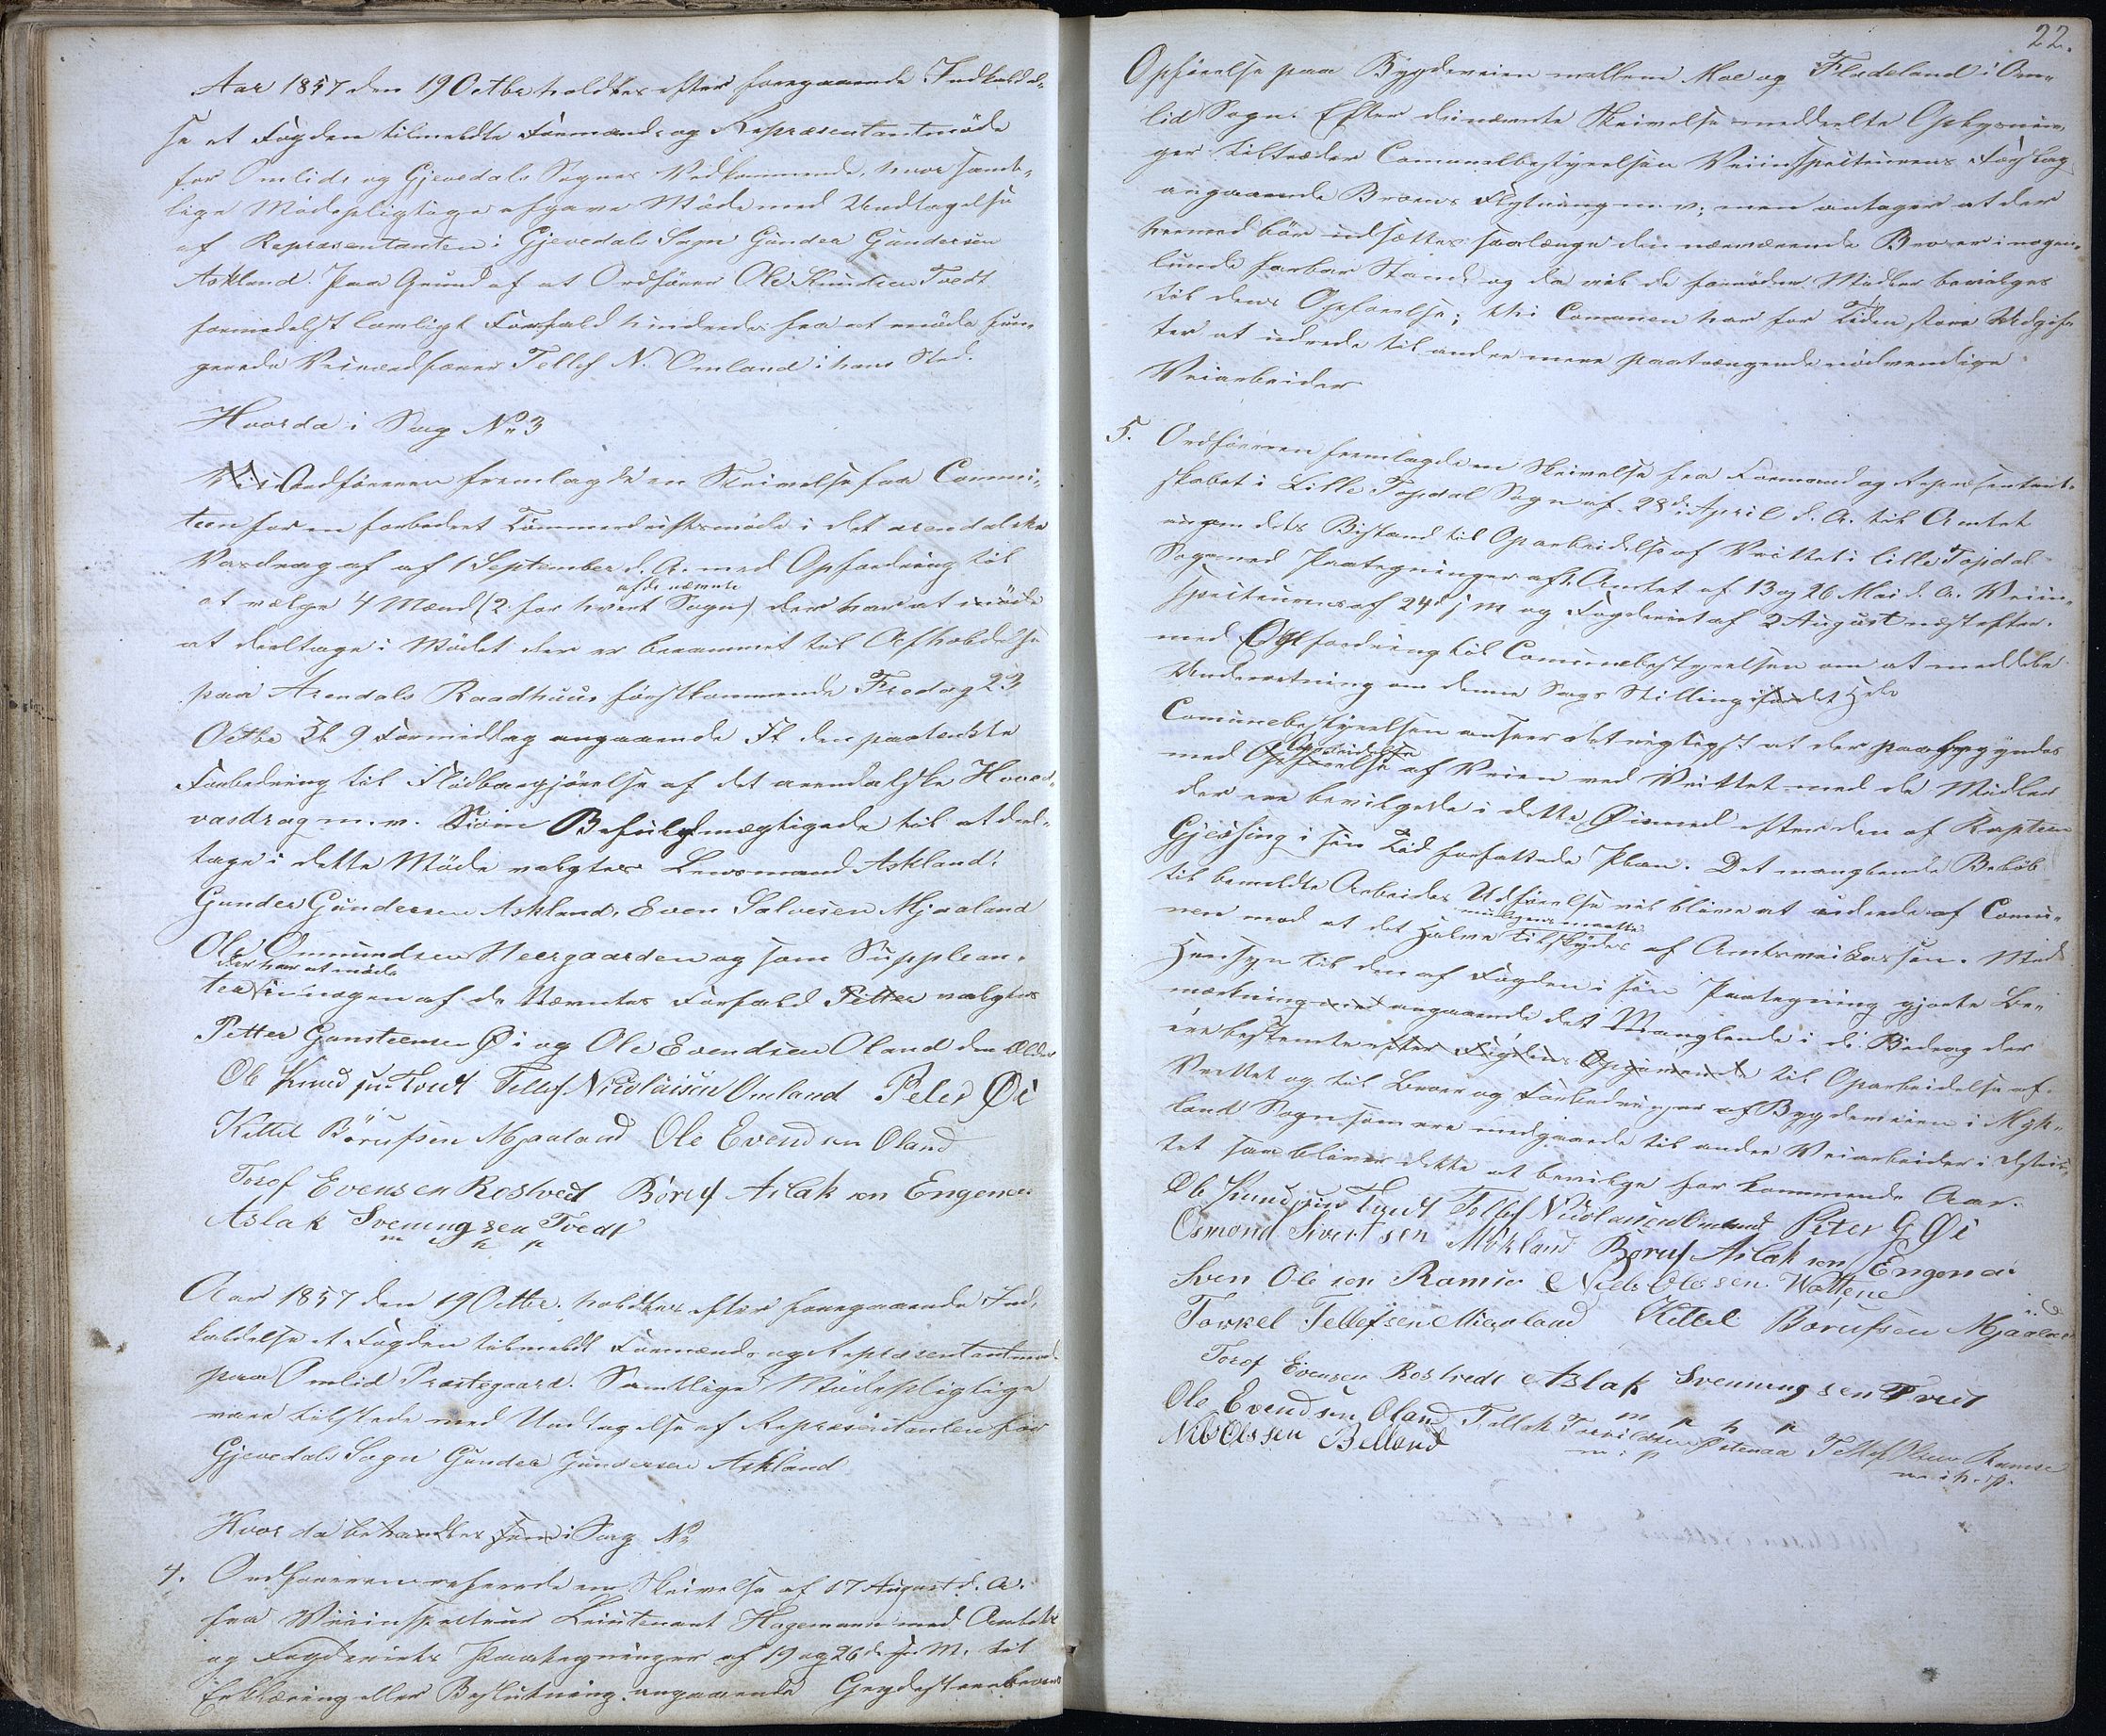 Aar 1857 den 19 Octbr holdtes efter foregaaende Indkaldel-
se et Fogden tilmeldte Formænds og Repræsentantmöde
for Omlids og Gjevedals Sognes Vedkommende, hvor samt-
lige Mödepligtige afgave Möde med Undtagelse
af Repræsentanten i Gjevedals Sogn Gunder Gundersen
Askland. Paa Grund af at Ordförer Ole Knudsen Tvedt
formedelst lovligt Forfald hindredes fra at möde fun-
gerede Viceordförer Tellef N. Omland i hans Sted.
Hvorda i Sag No 3
Ordföreren fremlagde en Skrivelse fra Commi-
teen for en forbedret Tömmerdriftsmöde i det arendalske
Vasdrag af af 1 September d. A. med Opfordring til
afde nævnte
at vælge 4 Mænd (2 for hvert Sogn) der har at möde
at deeltage i Mödet der er berammet til Afholdelse
paa Arendals Raadhuus förstkommende Fredag 23
Octbr Kl 9 Formiddag angaaende den paatænkte
Forbedring til Flödbargjörelse af det arendalske Hoved-
vasdrag m. v. Som Befuldmægtigede til at deel-
tage i dette Möde valgtes Lensmand Askland,
Gunder Gundersen Askland, Even Salvesen Mjaaland
Ole Omundsen Heergaarden og som Supplean-
der har at möde
ter i nogen af de Nævntes Forfald Petter valgtes
Petter Gunsteensen Øi og Ole Evendsen Oland den Ældre
Ole Knudsen Tvedt Tellef Nicolaisen Omland Peter Øi
Kittil Börufsen Mjaaland Ole Evendsen Oland
Torof Evensen Rostvedt Böruf Aslaksen Engene
Aslak Sveningsen Tvedt
m h p
Aar 1857 den 19 Octbr. holdtes efter foregaaende Ind-
kaldelse et Fogden tilmeldt Formænds og Repræsentantmöde
paa Omlid Præstegaard. Samtlige Mödepligtige
vare tilstede med Undtagelse af Repræsentanten for
Gjevedals Sogn Gunder Gundersen Askland
Hvor da behandles i Sag No
4. Ordföreren refererede en Skrivelse af 17 August d. A.
fra Veiinspecteur Lieutenant Hagemann med Amtets
og Fogderiets Paategninger af 19 og 26 d. M. til
Erklæring eller Beslutning angaaende
22.
Opförelse paa Bygdeveien mellem Moe og Fladeland i Om-
lid Sogn. Efter de i nævnte Skrivelse meddeelte Oplysnin-
ger tiltræder Communebestyrelsen Veiinspecteurens Forslag
angaaende Broens Flytning m. v; men antager at der
hermed bör udsættes saalænge den nærværende Bro er i nogen-
lunde farbar Stand og da vil de fornödne Midler bevilges
til dens Opförelse; thi Communen har for Tiden store Udgif-
ter at udrede til andre mere paatrængende nödvendige
Veiarbeider
5. Ordföreren fremlagde en Skrivelse fra Formand og Repræsentant-
skabet i Lille Topdal Sogn af 28de April d. A. til Amtet
angaaende Bistand til Oparbeidelse af Veittet i lille Topdal
Sogn med Paategninger af Amtet af 13 og 26 Mai d. A. Veiin-
specteurens af 24 og Fogderiet af 2 August næstefter.
med Opfordring til Communebestyrelsen om at meddele
Underretning om denne Sags Stilling i det Hele
Communebestyrelsen anseer det rigtigst at der paabegyndes
Oparbeidelse
med Opförelse af Veien ved Veittet med de Midler
der ere bevilgede i dette Øiemed efter den af Kaptein
Gjessing i sin Tid forfattede Plan. Det manglende Belöb
til bemeldte Arbeides Udförelse vil blive at udrede af Commu-
muligens maatte
nen mod at det Halve tilskydes af Amtsveikassen. Med
Hensyn til den af Fogden i sin Paategning gjorte Be-
mærkning angaaende det Manglende i de Bidrag der
ere bestemte efter Fogdens Opgivende til Oparbeidelse af
Veittet og til Broer og Forbedringer af Bygdeveien i Myk-
land Sogn som ere medgaaede til andre Veiarbeider i Distric-
tet saa bliver dette at bevilge for kommende Aar.
Ole Knudsen Tvedt Tellef Nicolaisen Omland Peter G Øi
Osmond Sivertsen Mökland Böruf Aslaksen Engene
Sven Olesen Ramse Niels Olesen Wattene
Torkel Tellefsen Mjaaland Kittel Börufsen Mjaaland
Torof Evensen Rostvedt Aslak Svenningsen Tvedt
Ole Evendsen Oland Tellef Olsen Ramse
m p h p
Nils Olssen Belland
m. i. h. p.